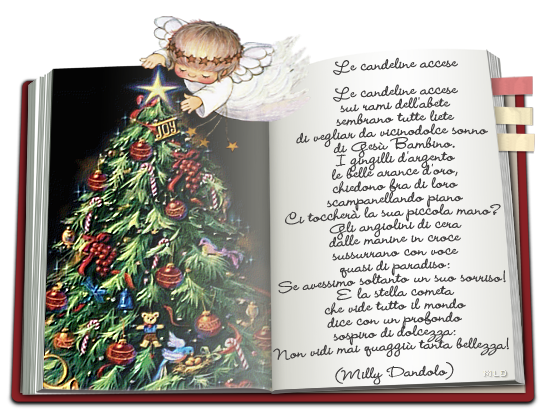 JOY
Le candeline accese
Le candeline accese
sui rami dell'abete
sembrano tutte liete
di vegliar da vicinodolce sonno
di Gesù Bambino.
I gingilli d'argento
le belle arance d'oro,
chiedono fra di loro
scampanellando piano
Ci toccherà la sua piccola mano?
Gli angiolini di cera
dalle manine in croce
sussurrano con voce
quasi di paradiso:
Se avessimo soltanto un suo sorriso!
E la stella cometa
che vide tutto il mondo
dice con un profondo
sospiro di dolcezza:
Non vidi mai quaggiù tanta bellezza!
(Milly Dandolo)
MLD